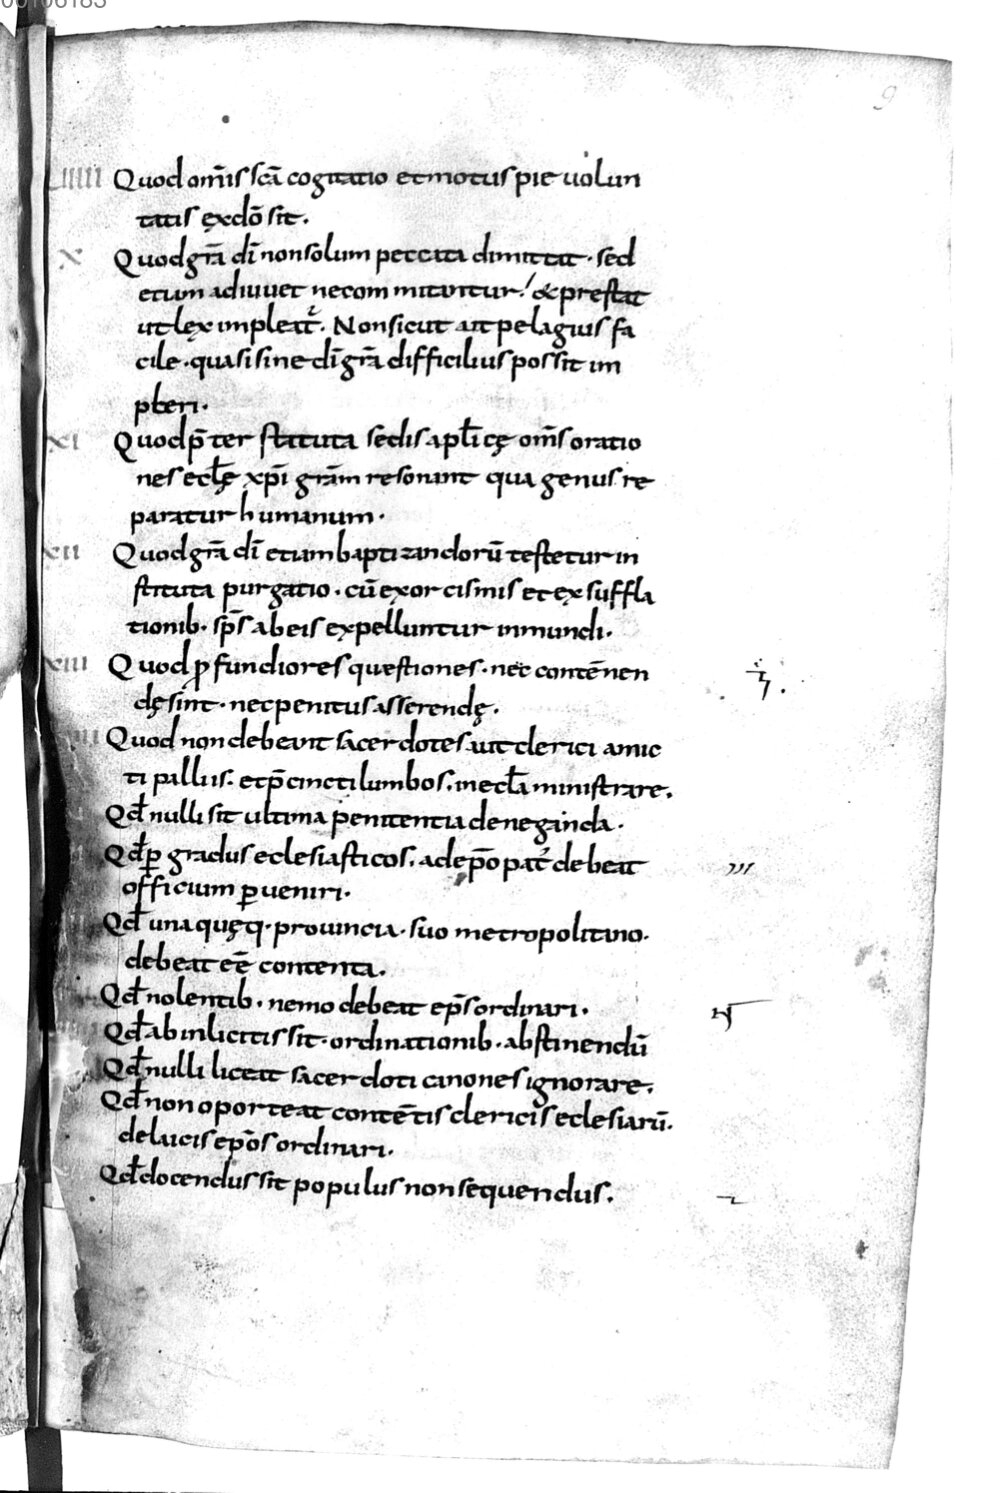 00106183
9
VIIII Quod om̄is sc̄a cogitatio et motus pie uolun
tatis ęx dō sit.
X Quod gr̄a dī non solum peccata dimittat · sed
etiam adiuuet ne committantur! & prestat
ut lęx impleat̄. Non sicut ait pelagius fa
cile · quasi sine dī gr̄a difficilius possit im
pleri.
XI Quod p̄ter statuta sedis apl̄icę om̄s oratio
nes eclł̄ę xp̄i grām resonant qua genus re
paratur humanum.
XII Quod gr̄a dī etiam baptizandorū testetur in
stituta purgatio · cū exorcismis et exsuffla
tionib· sp̄s ab eis expelluntur inmundi.
XIII Quod ꝓfundiores questiones · nec contēnen
dę sint · nec penitus asserendę.
Quod non debeant sacerdotes aut clerici amic
ti palliis · et p̄cincti lumbos · in ecl̄a ministrare.
Qd̄ nulli sit ultima penitentia deneganda.
Qd̄ ꝑ gradus eclesiasticos · ad ep̄opat̄ debeat
officium ꝑueniri.
Qd̄ unaquęq· prouincia · suo metropolitano
debeat eē contenta.
Qd̄ nolentib· nemo debeat ep̄s ordinari.
Qd̄ ab inlicitis sit · ordinationib· abstinendū
Qd̄ nulli liceat sacerdoti canones ignorare.
Qd̄ non oporteat contē̄tis clericis eclesiarū.
de laicis ep̄os ordinari.
Qd̄ docendus sit populus non sequendus.